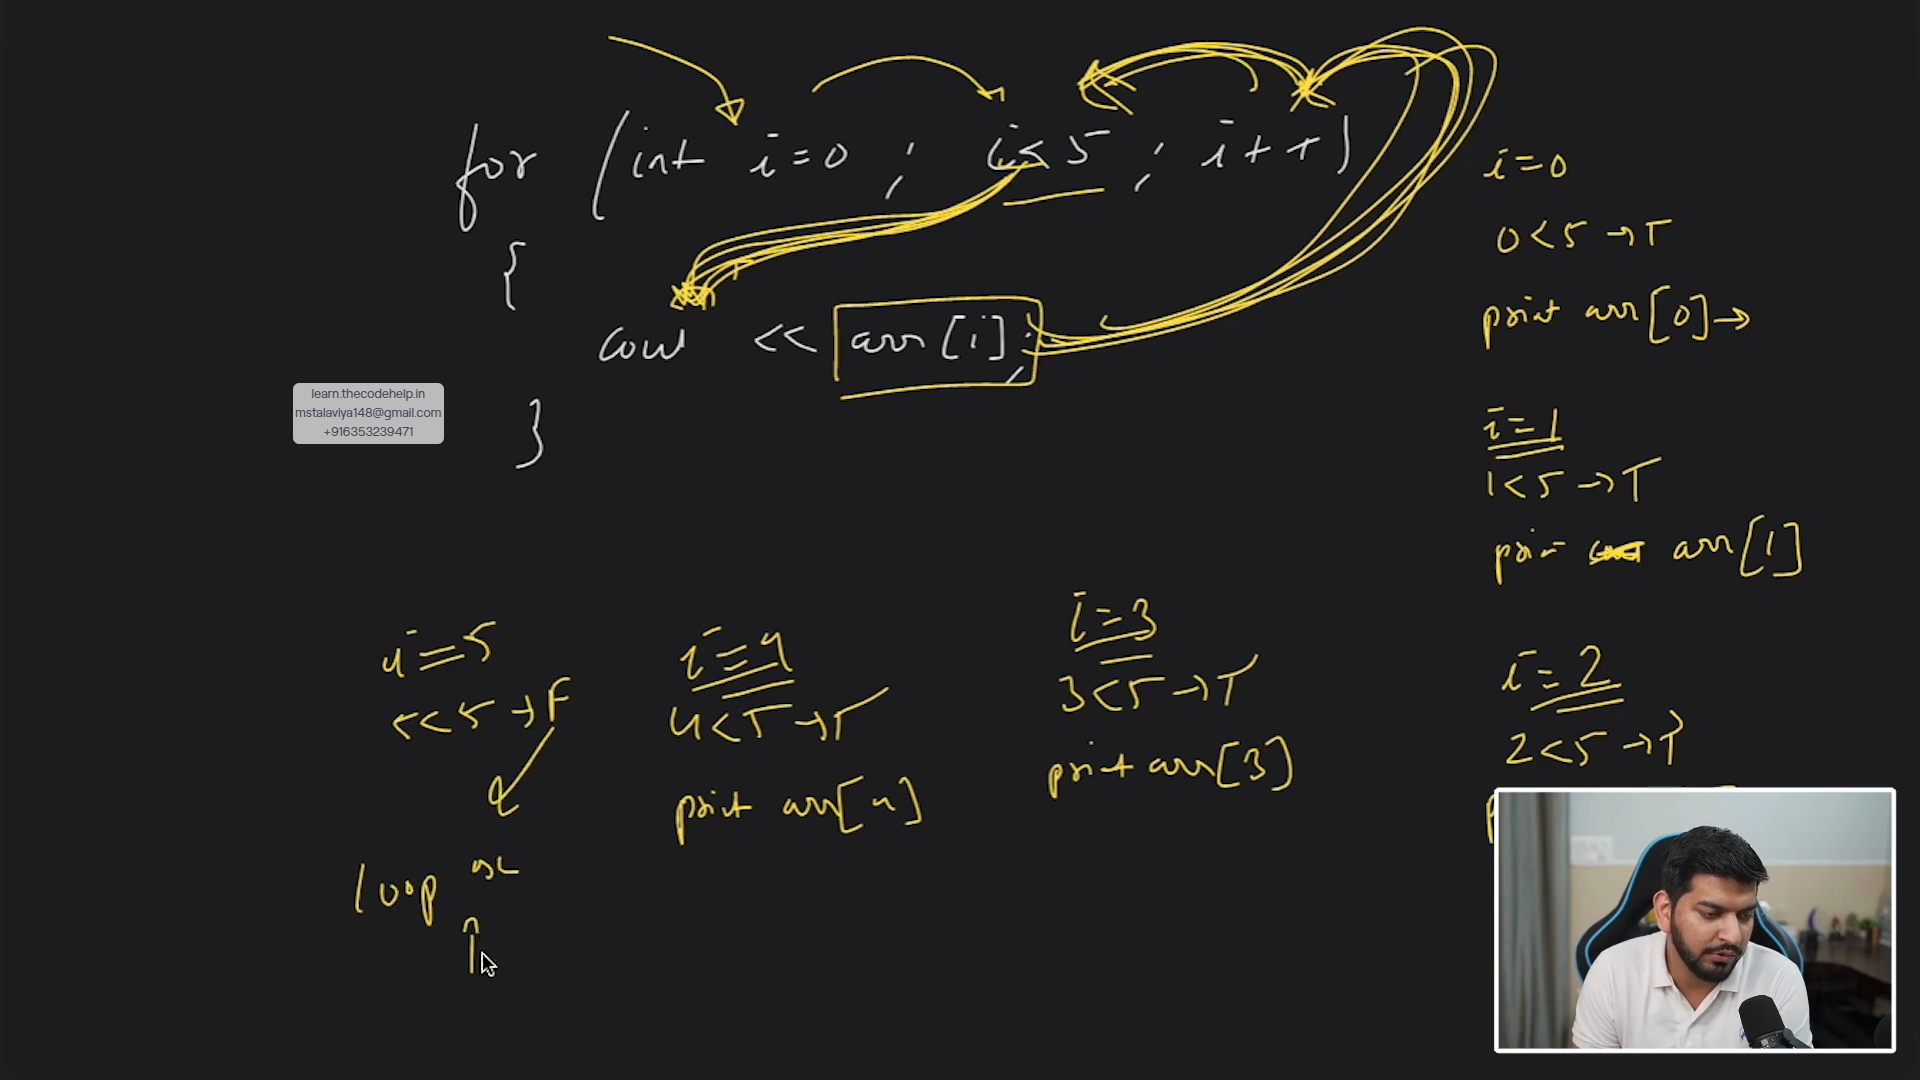 for (int i=0 ; i<5 ; i++)
{
cout << arr[i];
}
learn.thecodehelp.in
mstalaviya148@gmail.com
+916353239471
i=0
0<5 →T
print arr[0]→
i=1
1<5 →T
print arr[1]
i=2
2<5 →T
i=3
3<5 →T
print arr[3]
i=4
4<5 →T
print arr[4]
i=5
5<5 →F
loop